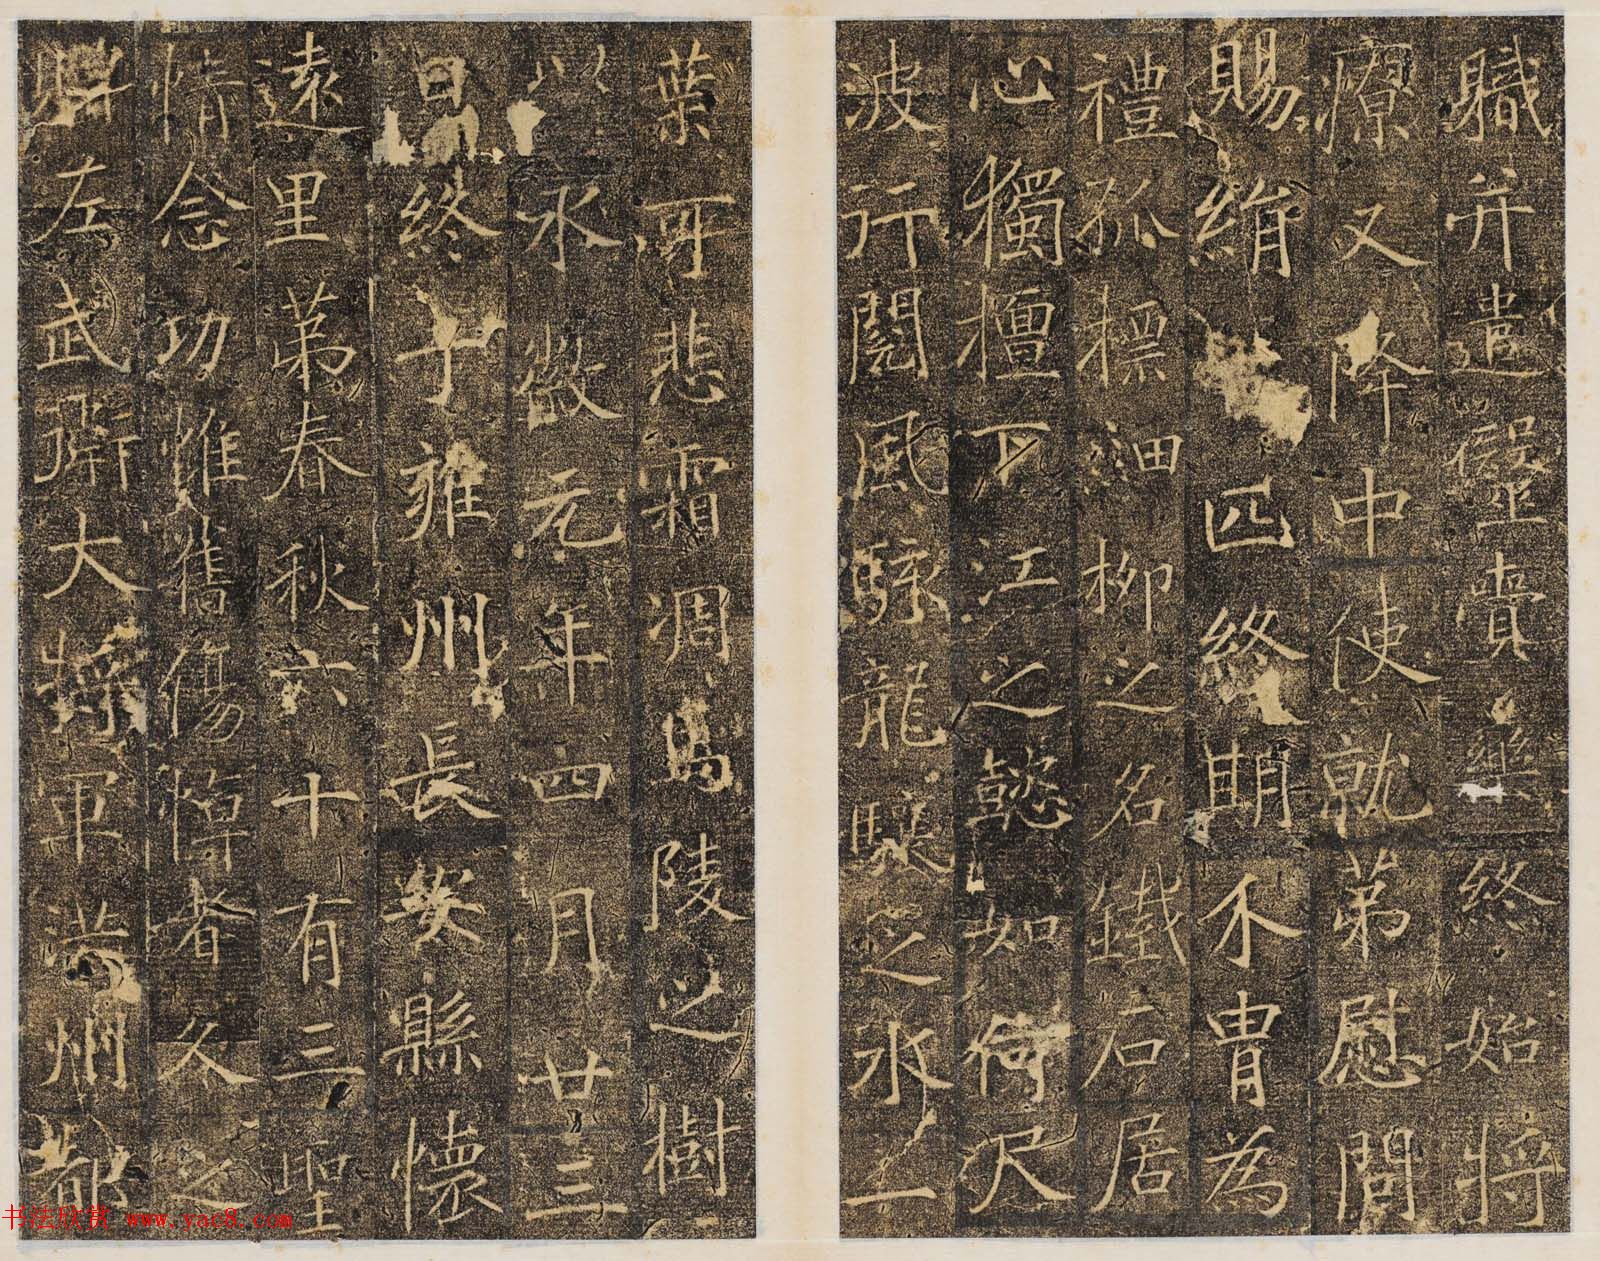 職并遣醫賷藥終始將
療又降中使就苐慰問
賜絹匹終期不冑為
禮孤標細柳之名鐵石居
心獨擅下江之懿如何尺
波行閱風驟龍驤之水一
葉可悲霜凋馬陵之樹
以永徽元年四月廿三
日終于雍州長安縣懷
遠里苐春秋六十有三聖
情念功惟舊傷悼者久之
贈左武衛大將軍洪州都
书法欣赏 www.yac8.com